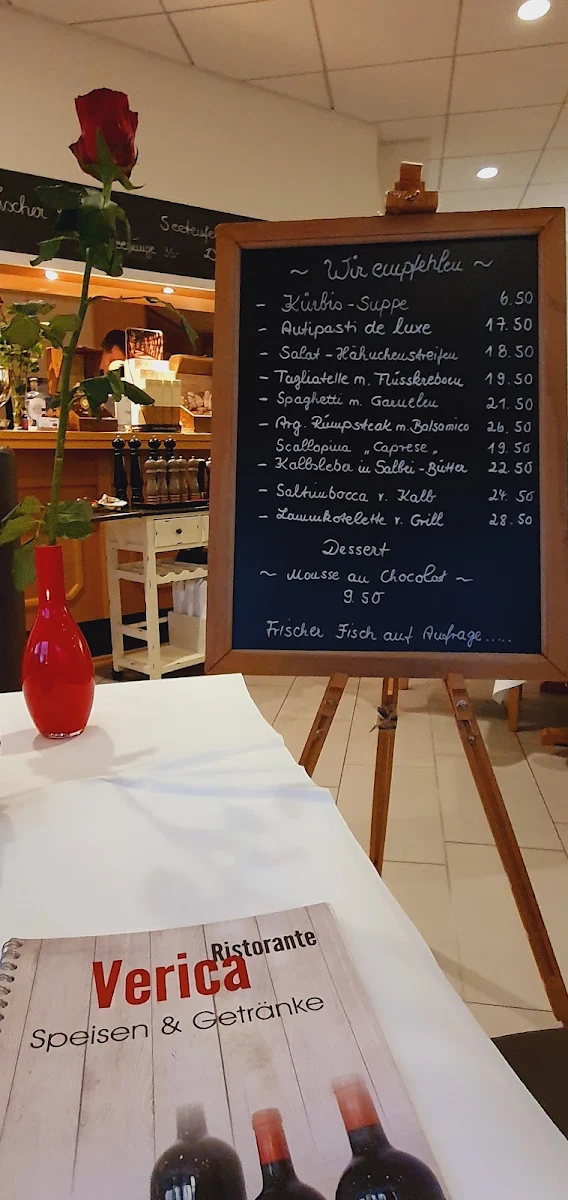 ~ Wir empfehlen ~
- Kürbis-Suppe 6.50
- Antipasti de luxe 17.50
- Salat-Hähnchenstreifen 18.50
- Tagliatelle m. Flusskrebsen 19.50
- Spaghetti m. Garnelen 21.50
- Arg. Rumpsteak m. Balsamico 26.50
Scallopina "Caprese" 19.50
- Kalbsleber in Salbei-Butter 22.50
- Saltimbocca v. Kalb 24.50
- Lammkotelette v. Grill 28.50
Dessert
~ Mousse au Chocolat ~
9.50
Frischer Fisch auf Anfrage.....
Ristorante
Verica
Speisen & Getränke